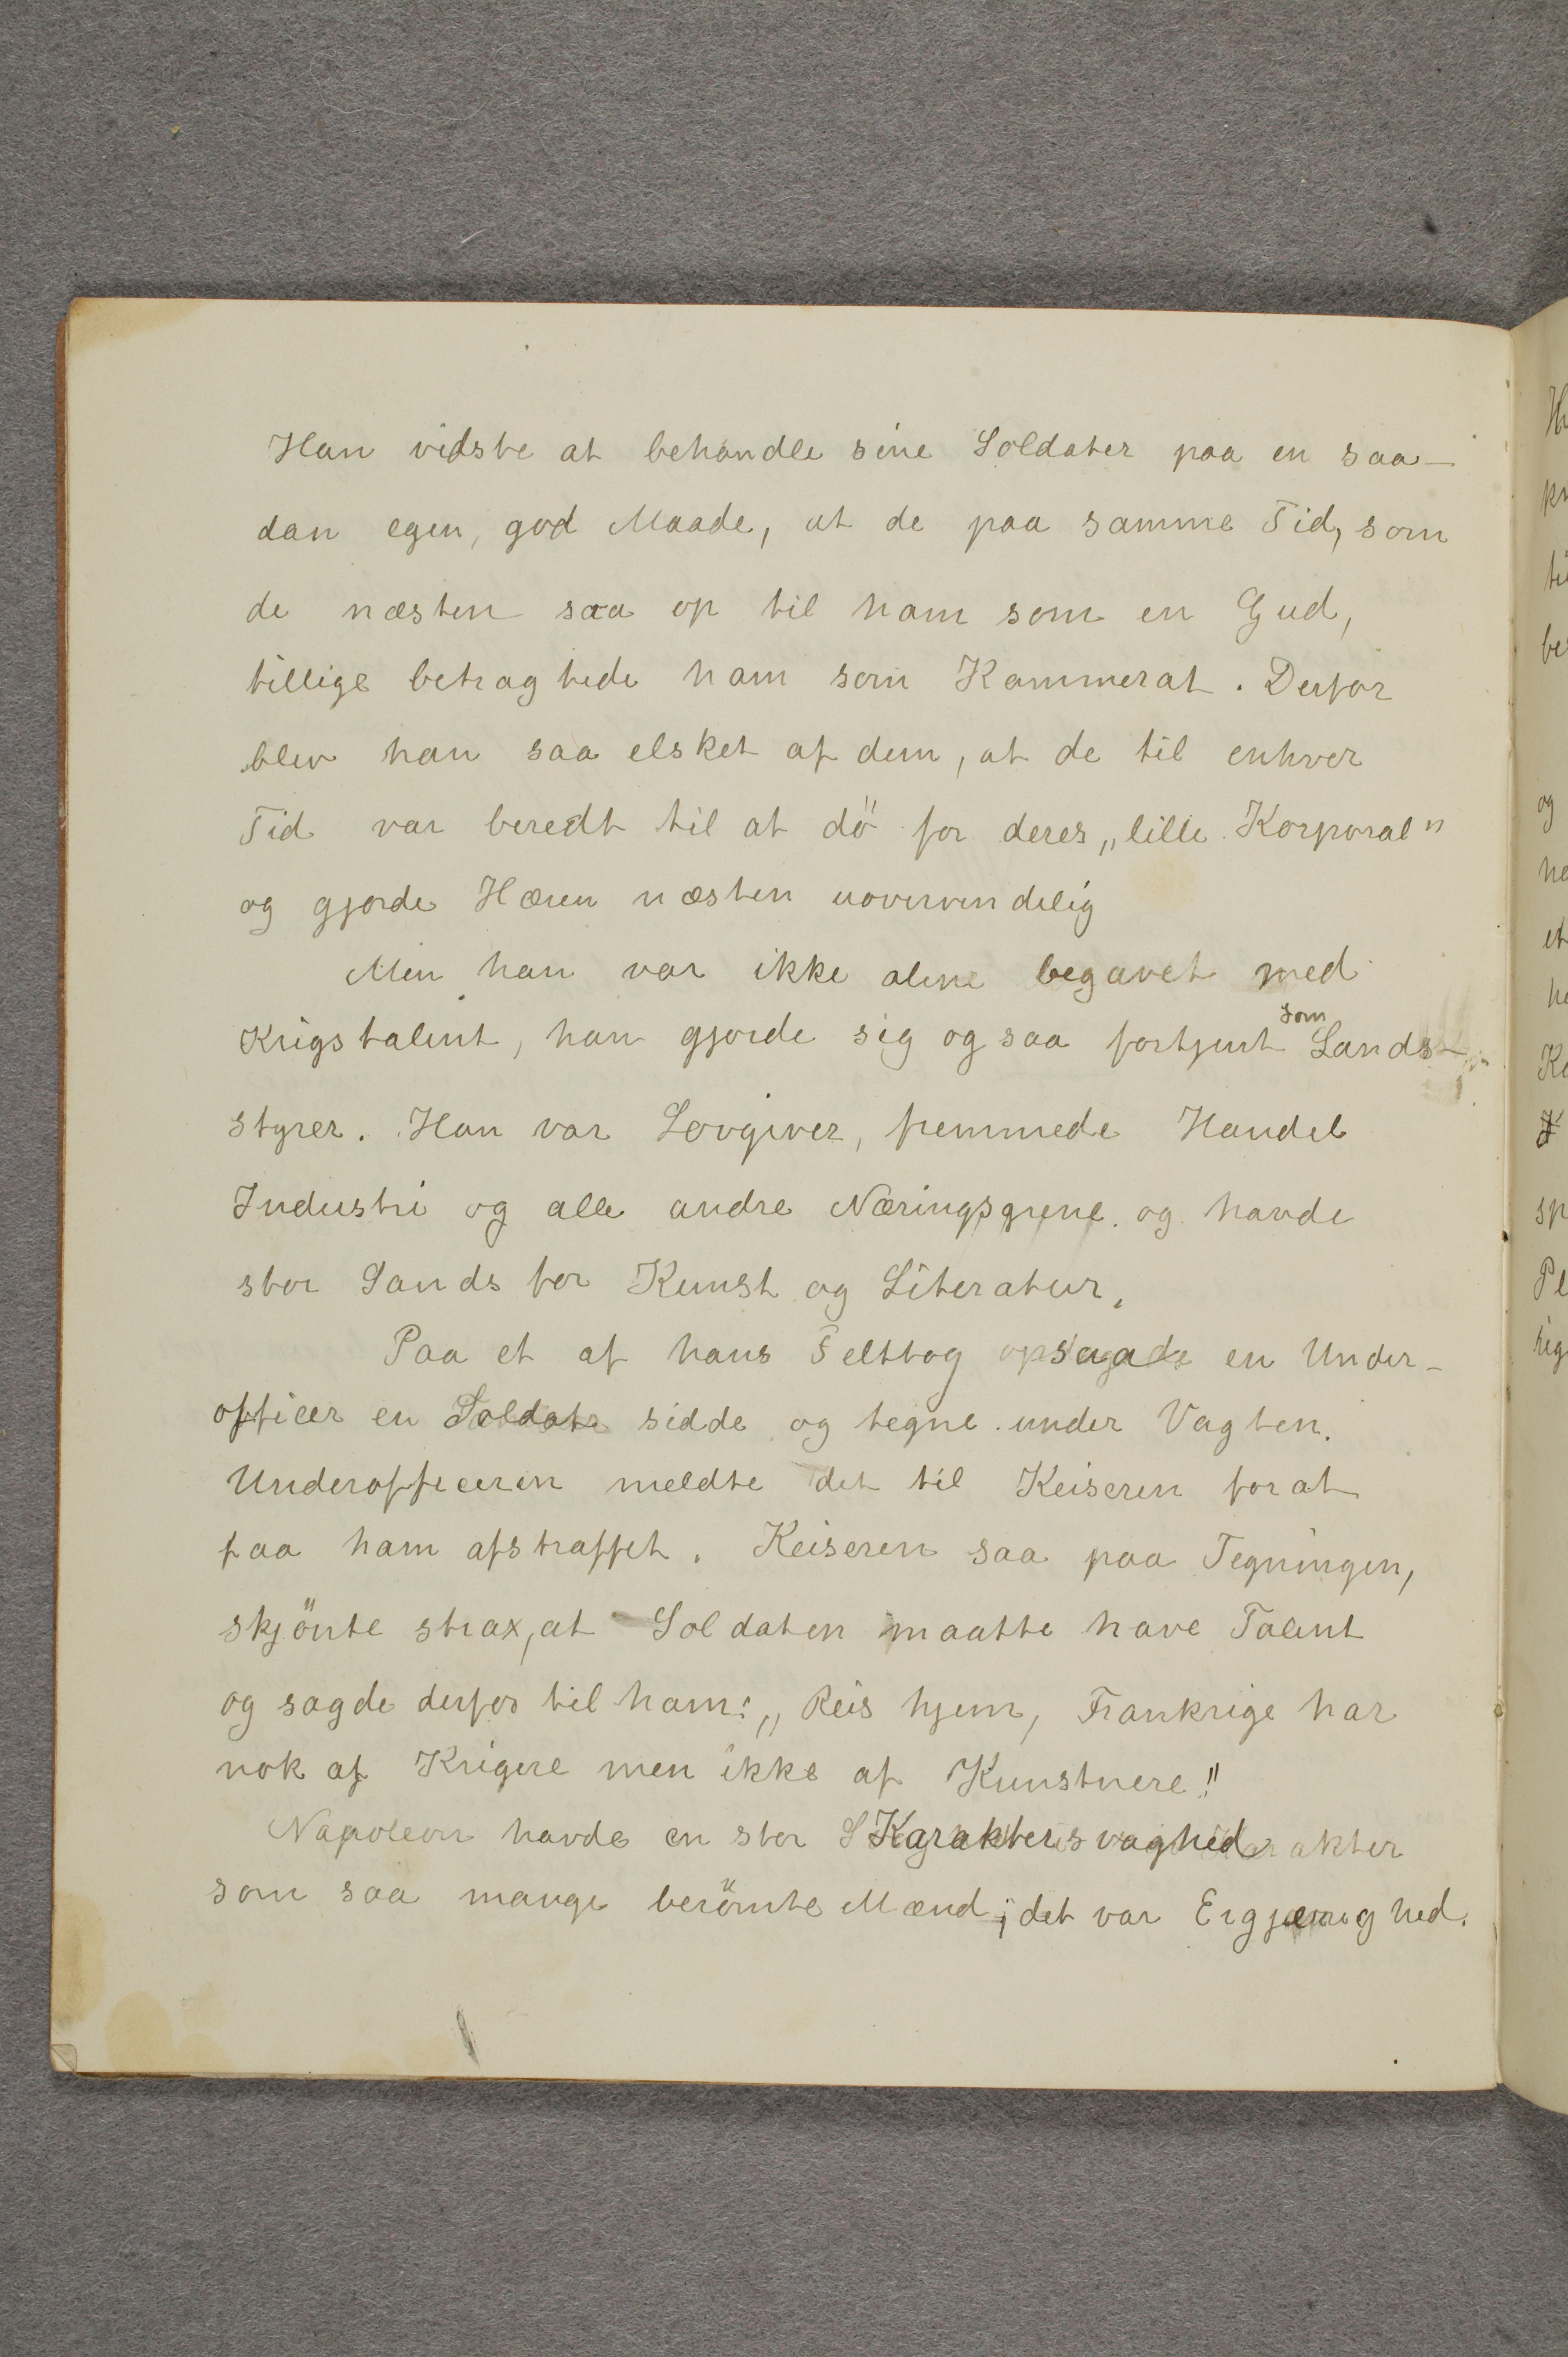 Han vidste at behandle sine Soldater paa en saa-
dan egen, god Maade, at de paa samme Tid, som
de næsten saa op til ham som en Gud,
tillige betragtede ham som Kammerat. Derfor
blev han saa elsket af dem, at de til enhver
Tid var beredt til at dö for deres „lille Korporal"
og gjorde Hæren næsten uovervindelig
Men han var ikke alene begavet med
Krigstalent, han gjorde sig ogsaa fortjent som Lands-
styrer. Han var Lovgiver, fremmede Handel
Industri og alle andre Næringsgrene og havde
stor Sands for Kunst og Literatur.
Paa et af hans Felttog opsagde en Under-
officer en Soldat sidde og tegne under Vagten.
Underofficeren meldte det til Keiseren for at
faa ham afstraffet. Keiseren saa paa Tegningen,
skjönte strax, at Soldaten maatte have Talent
og sagde derfor til ham: „Reis hjem, Frankrige har
nok af Krigere men ikke af Kunstnere!"
Napoleon havde en stor S Karaktersvaghed
som saa mange berömte Mænd; det var Ergjerrighed.